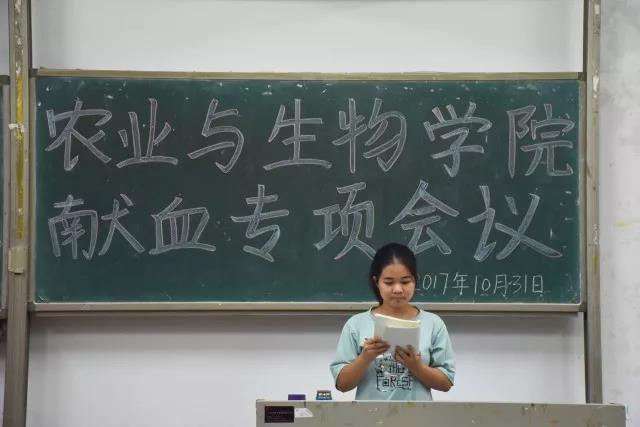 农业与生物学院
献血专项会议
2017年10月31日
THE
FOREST